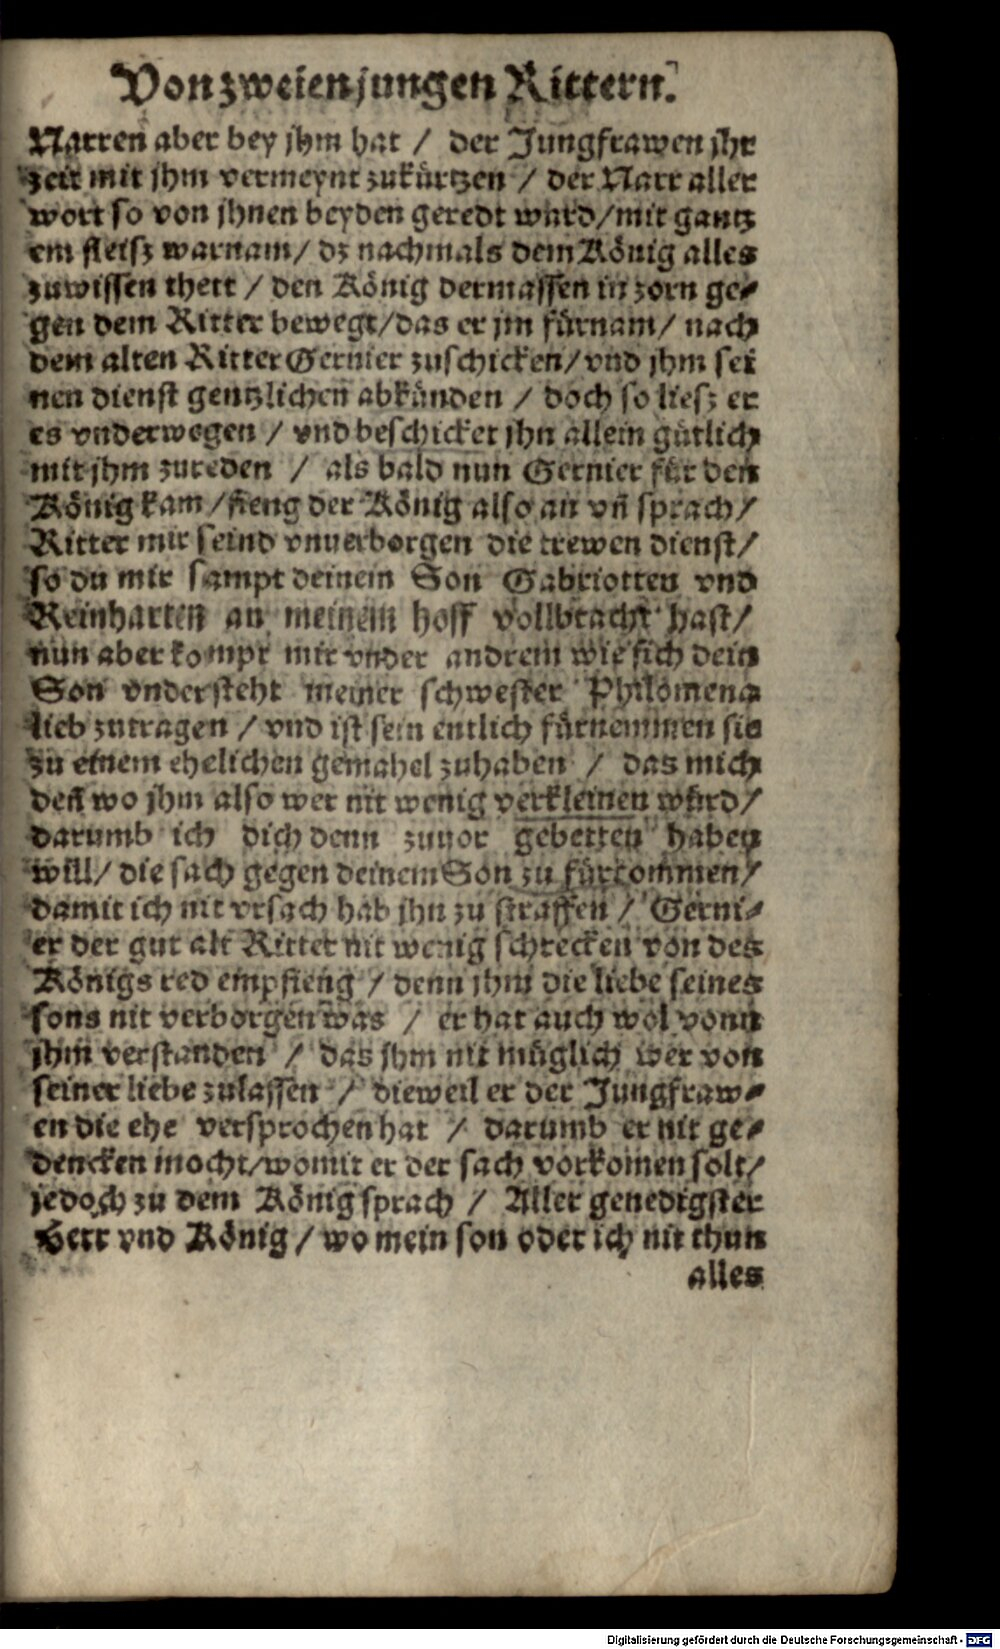 Von zweien jungen Rittern.
Narren aber bey jhm hat / der Jungfrawen jhr
zeit mit jhm vermeynt zukürtzen / der Narr aller
wort so von jhnen beyden geredt ward/mit gantz
em fleisz warnam/ dz nachmals dem König alles
zuwissen thett / den König dermassen in zorn ge⸗
gen dem Ritter bewegt/das er jm fürnam/ nach
dem alten Ritter Gernier zuschicken/vnd jhm sei
nen dienst gentzlichen abkünden / doch so liesz er
es vnderwegen / vnd beschicket jhn allein gütlich
mit jhm zureden / als bald nun Gernier für den
König kam /fieng der König also an vñ sprach/
Ritter mir seind vnuerborgen die trewen dienst/
so du mir sampt deinem Son Gabriotten vnd
Reinharten an meinem hoff vollbracht hast/
nun aber kompt mir vnder andrem wie sich dein
Son vndersteht meiner schwester Philomena
lieb zutragen / vnd ist sein entlich fürnemmen sie
zu einem ehelichen gemahel zuhaben / das mich
deñ wo jhm also wer nit wenig verkleinen würd/
darumb ich dich denn zuuor gebetten haben
will/ die sach gegen deinem Son zu fürkommen/
damit ich nit vrsach hab jhn zu straffen / Gerni⸗
er der gut alt Ritter nit wenig schrecken von des
Königs red empfieng / denn jhm die liebe seines
sons nit verborgen was / er hat auch wol vonn
jhm verstanden / das jhm nit müglich wer von
seiner liebe zulassen / dieweil er der Jungfraw⸗
en die ehe versprochen hat / darumb er nit ge⸗
dencken mocht/womit er der sach vorkomen solt/
jedoch zu dem König sprach / Aller genedigster
Herr vnd König / wo mein son oder ich nit thun
alles
Digitalisierung gefördert durch die Deutsche Forschungsgemeinschaft - DFG